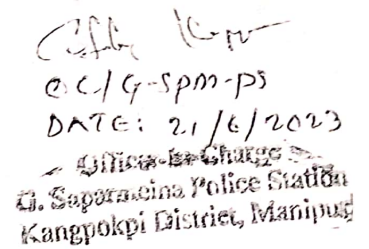 OC/G-SPM-PS
DATE: 21/6/2023
Officer-In-Charge
G. Saparmeina Police Station
Kangpokpi District, Manipur